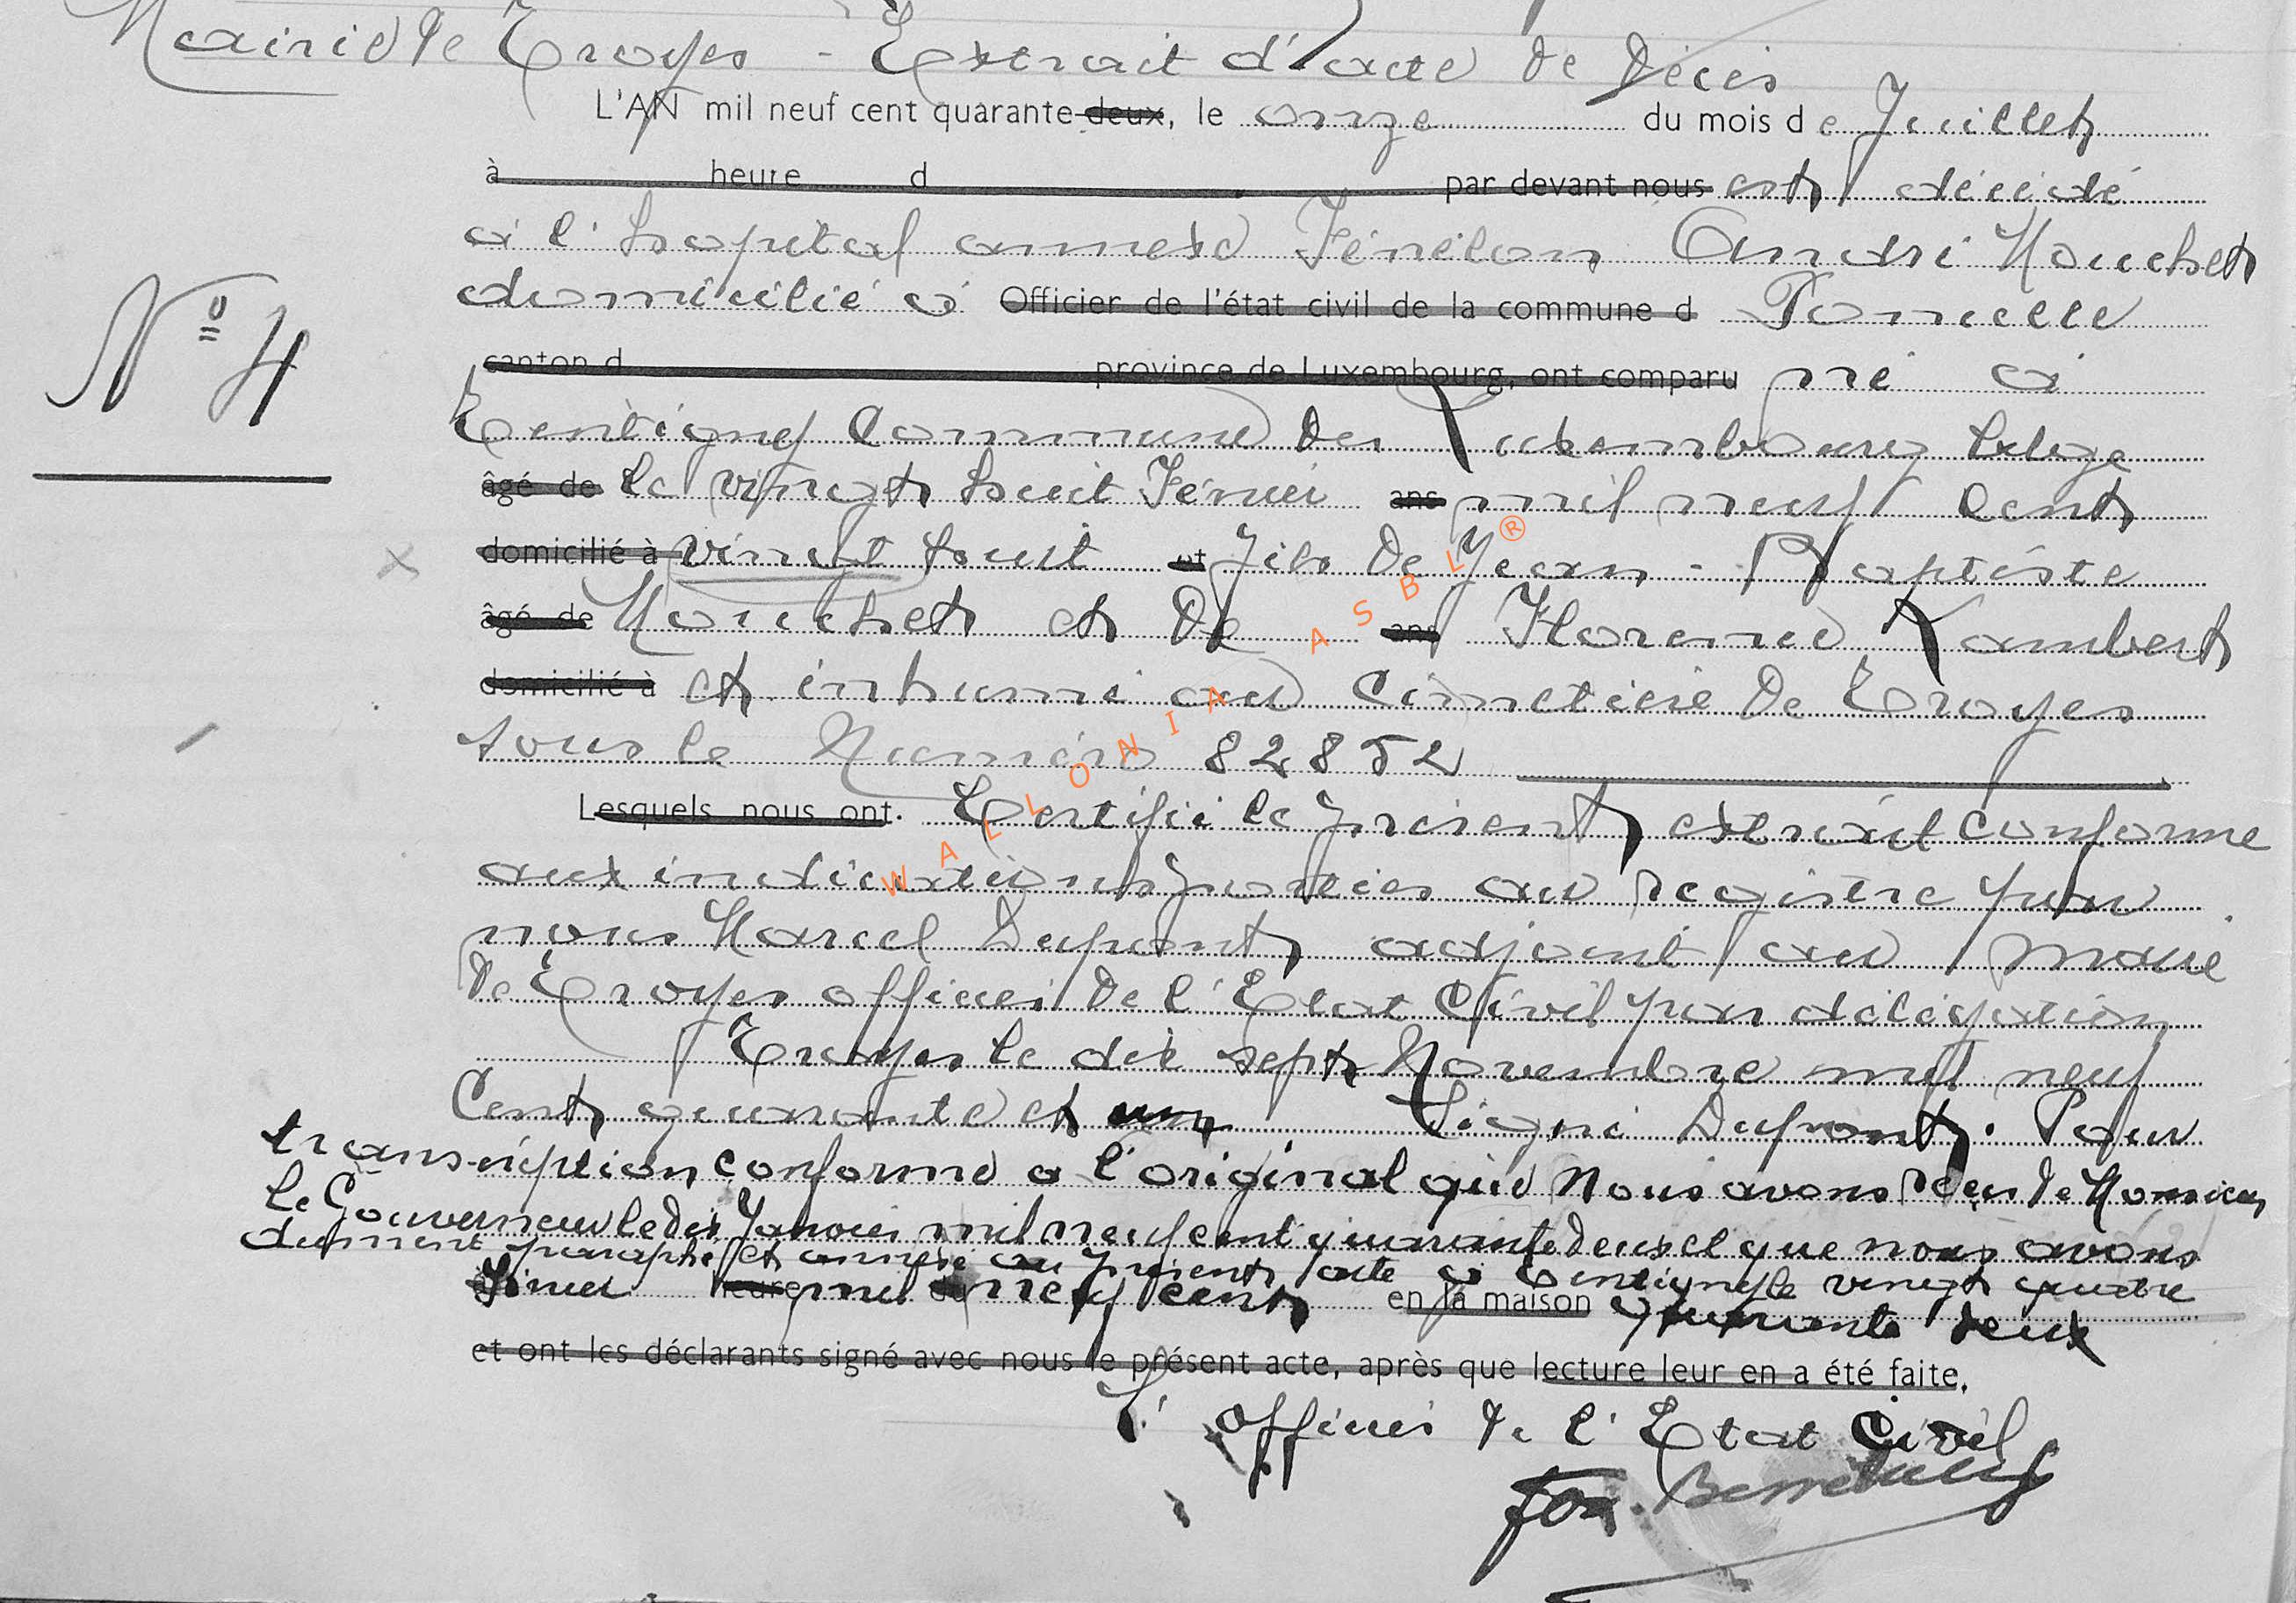 Mairie de Troyes - Extrait d'acte de Décès
L'AN mil neuf cent quarante deux, le onze du mois de Juillet
à heure d par devant nous est décédé
à l'hopital annexe Fénélon André Mouchet
domicilié à Officier de l'état civil de la commune d
canton d province de Luxembourg, ont comparu né à
Tentigny Commune du Luxembourg belge
N° 4
âgé de le vingt huit Février ans mil neuf cent
domicilié à vingt huit et fils de Jean-Baptiste
âgé de Mouchet et de ans Florence Lambert
domicilié à et inhumé au Cimetière de Troyes
sous le Numéro 82852
Lesquels nous ont. Certifié le présent extrait conforme
aux indications portées au registre par
nous Marcel Dupont adjoint au maire
de Troyes officier de l'Etat Civil par délégation
Troyes le dix sept Novembre mil neuf
Cent quarante et un Signé Dupont. Pour
transcription conforme a l'original que Nous avons reçu de Monsieur
le Gouverneur le dix Janvier mil neuf cent quarante deux et que nous avons
dument paraphé et annexé au présent acte à Tentigny le vingt quatre
à heure mil neuf cent en la maison quarante deux
et ont les déclarants signé avec nous le présent acte, après que lecture leur en a été faite.
L'officier de l'Etat Civil
WALLONIA ASBL®